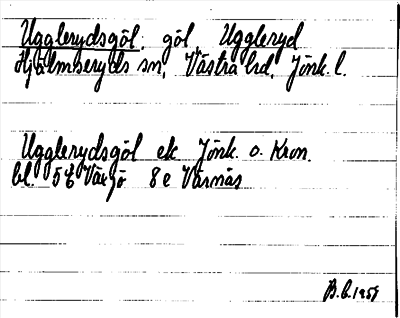 Ugglerydsgöl: göl, Uggleryd
Hjälmseryds sn, Västra hd, Jönk. l.
Ugglerydsgöl ek Jönk. o. Kron.
bl. 5E Växjö 8e Värnäs
B.b. 1959